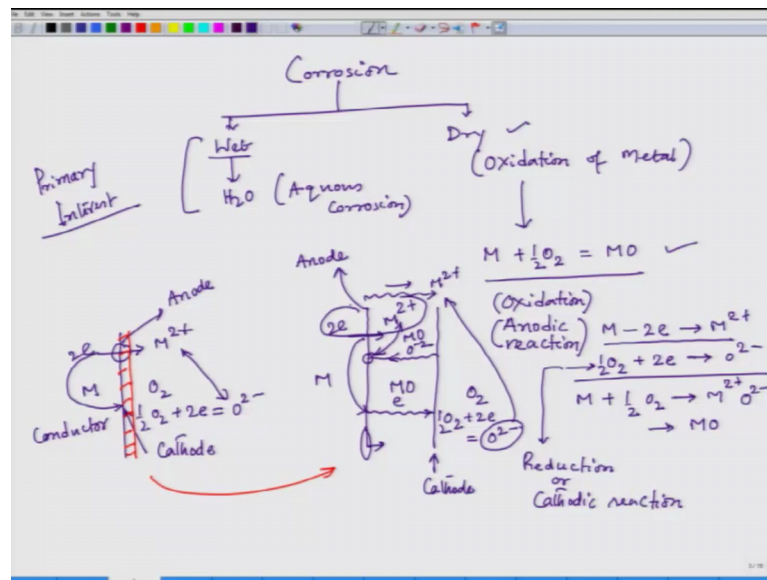 File Edit View Insert Actions Tools Help
Corrosion
Wet
Dry ✓
(Oxidation of Metal)
H₂O (Aquous
Corrosion)
Primary
Interest
M + ½O₂ = MO ✓
(Oxidation)
(Anodic
reaction)
M - 2e → M²⁺
½O₂ + 2e → O²⁻
M + ½O₂ → M²⁺O²⁻
→ MO
Reduction
or
Cathodic reaction
Anode
2e
M²⁺
M
O₂
Conductor
½O₂ + 2e = O²⁻
Cathode
Anode
M²⁺
2e
M²⁺
MO
O²⁻
M
MO
e
O₂
½O₂ + 2e
= O²⁻
Cathode